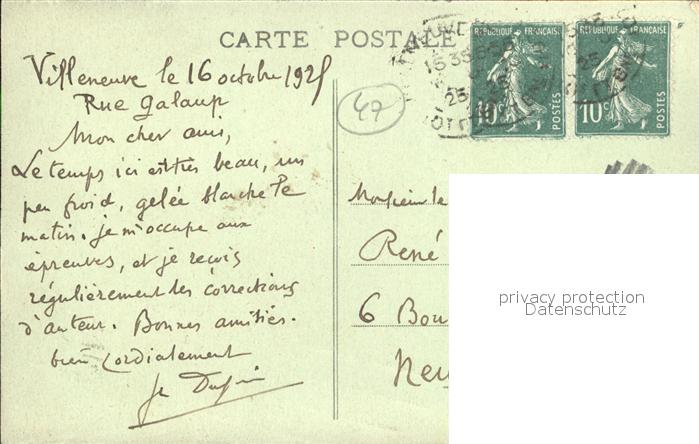 CARTE POSTALE
RÉPUBLIQUE FRANÇAISE
10c
POSTES
RÉPUBLIQUE FRANÇAISE
10c
POSTES
47
Villeneuve le 16 octobre 1925
Rue Galaup
Mon cher ami,
Le temps ici est très beau, un
peu froid, gelée blanche le
matin. Je m'occupe aux
épreuves, et je reçois
régulièrement les corrections
d'auteur. Bonnes amitiés.
bien cordialement
Monsieur le
René
6 Bou
Neu
privacy protection
Datenschutz